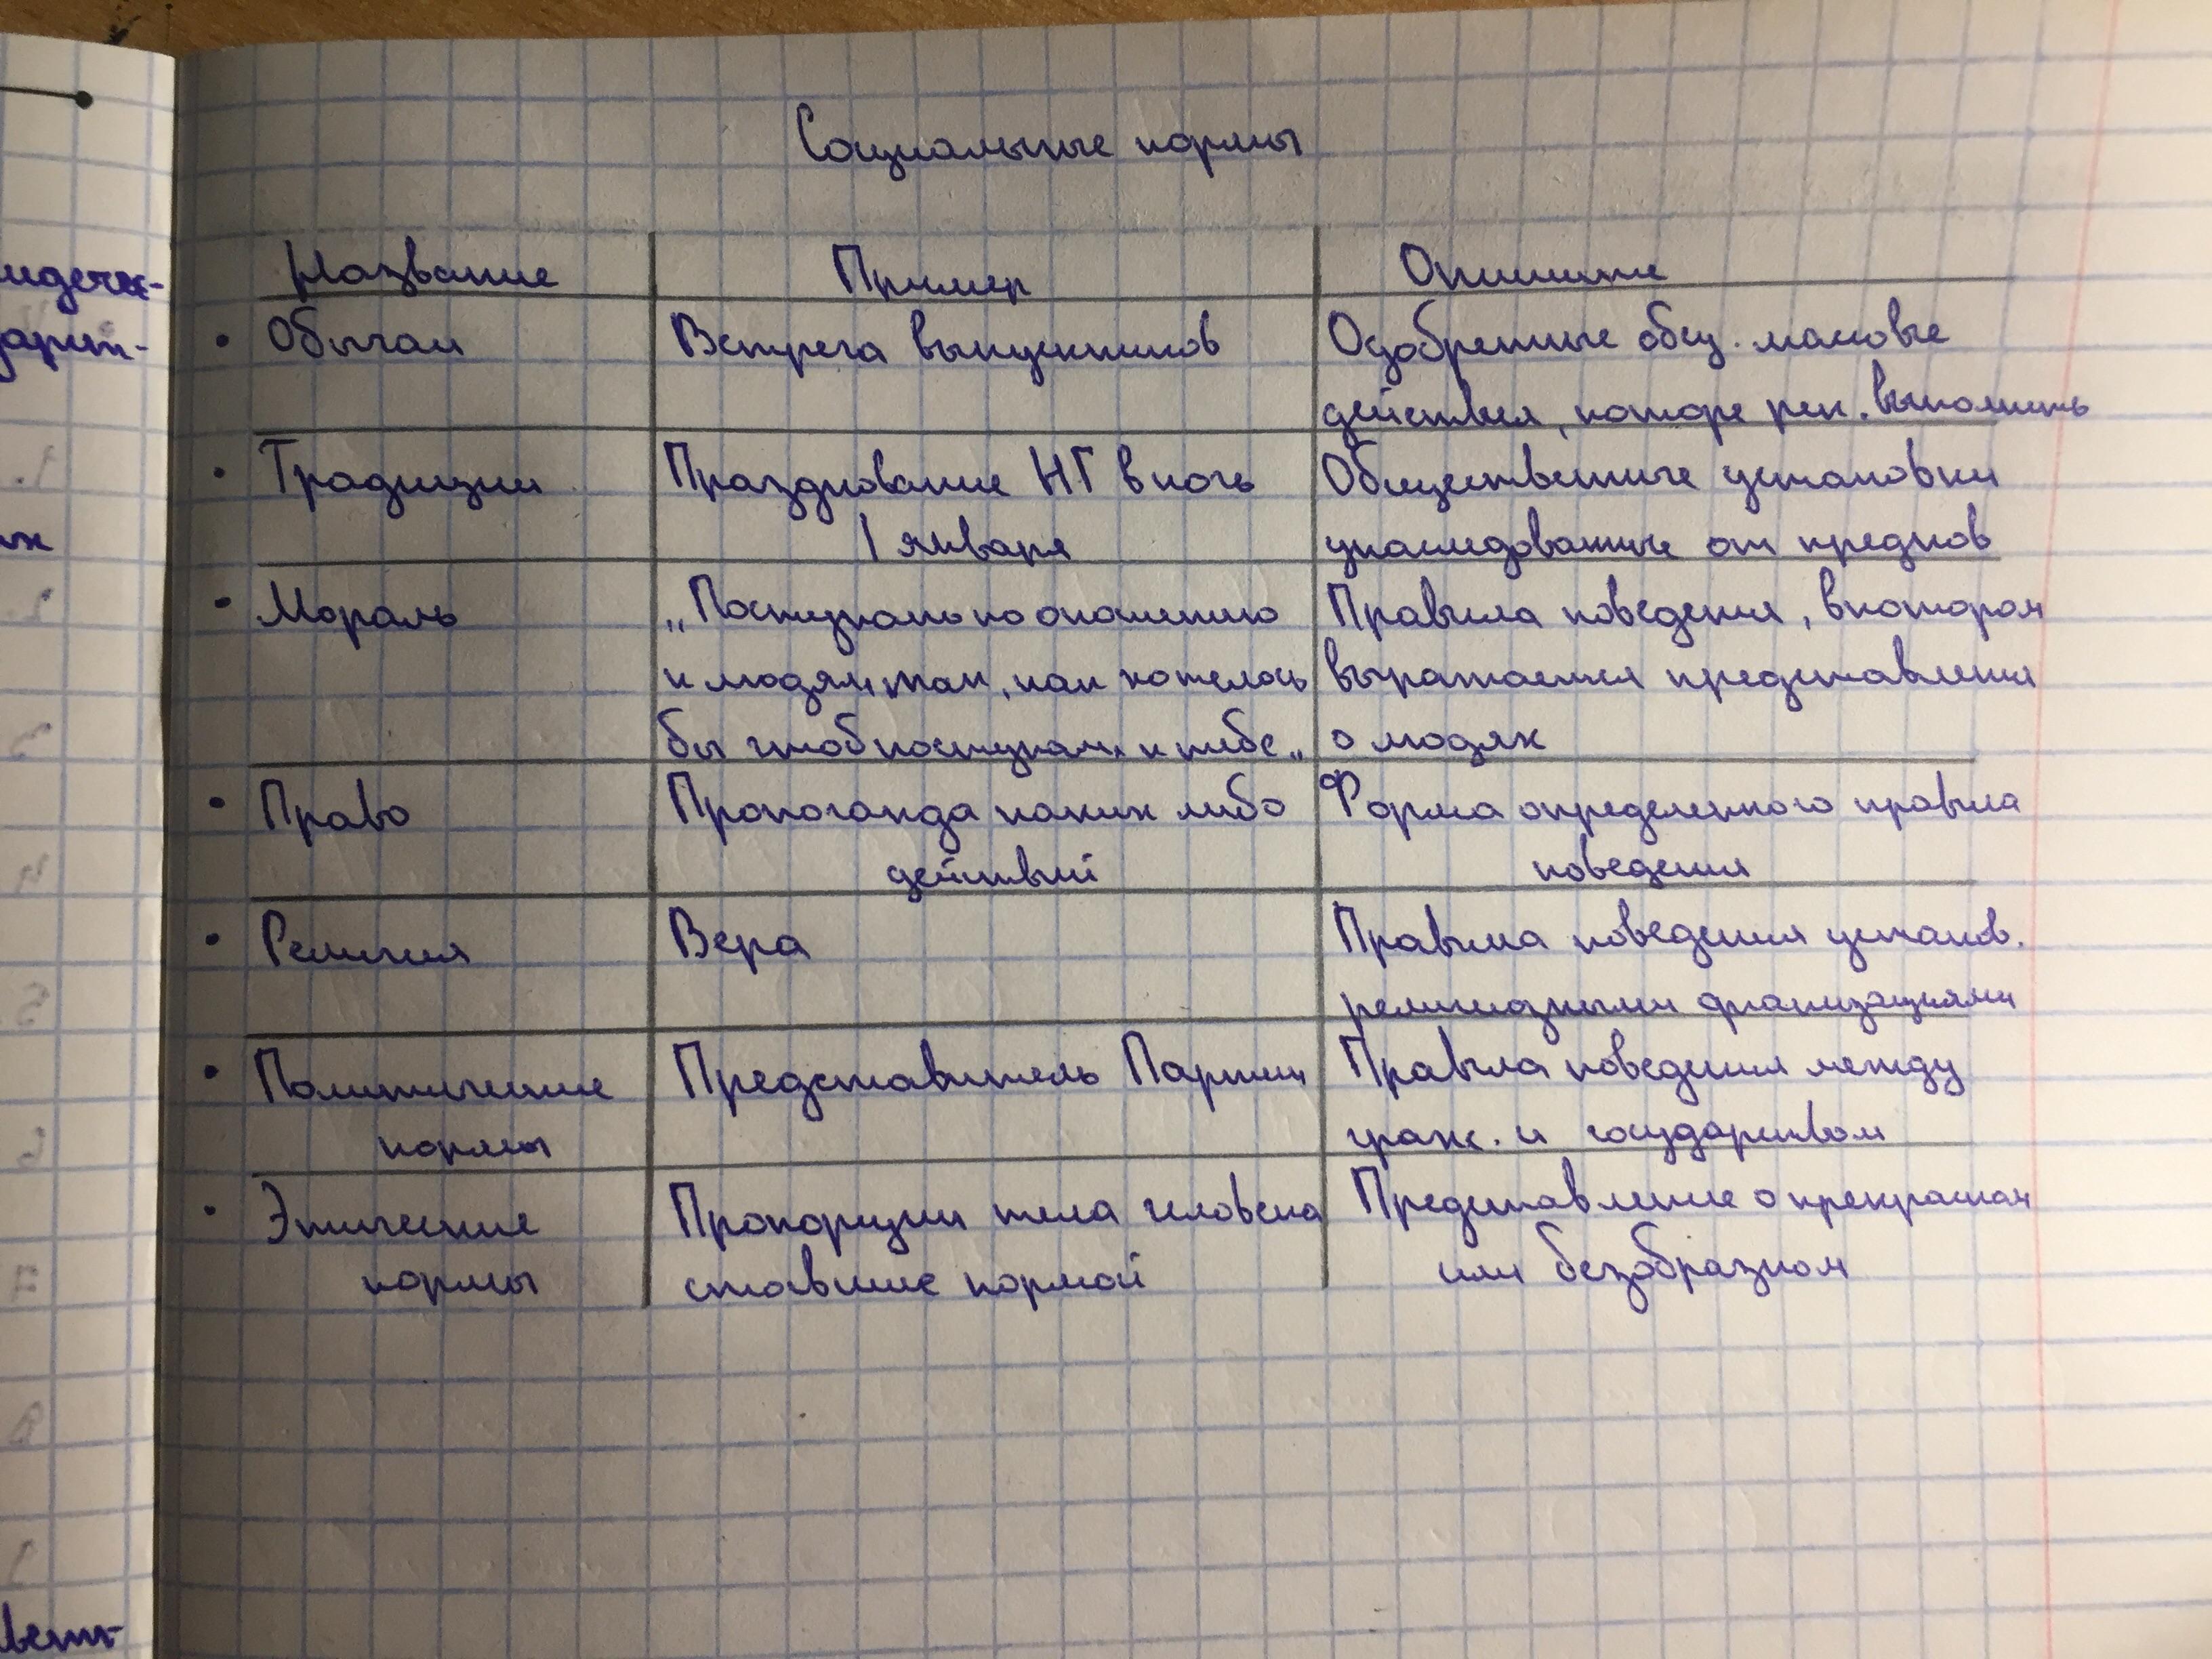 Социальные нормы
Название Пример Опишите
• Обычаи Встреча выпускников Одобренные общ. массовые
действия, которе рек. выполнить
• Традиции Празднование НГ в ночь Общественные установки
1 января унаследованные от предков
• Мораль „Поступать по отношению Правила поведения, в котором
к людям так, как хотелось выражается представления
бы чтоб поступали к тебе„ о людях
• Право Пропоганда каких либо Форма определенного правила
действий поведения
• Религия Вера Правила поведения установ.
религиозными организациями
• Политические Представитель Партии Правила поведения между
нормы граж. и государством
• Этические Пропорции тела человека Представление о прекрасном
нормы ставшие нормой или безобразном